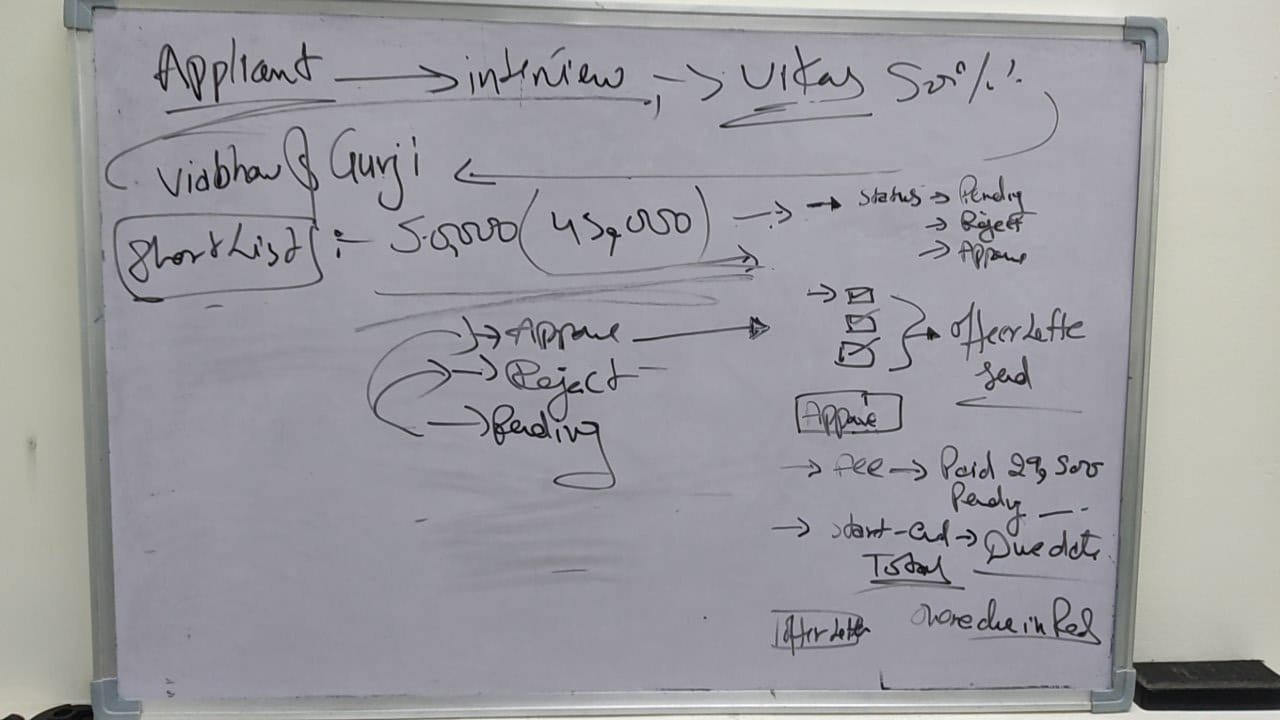 Applicant → interview → Vikas 50%
Viabhav & Gurji
ShortList :- 50,000 (45,000) → → Status → Pending
→ Reject
→ Approve
→ Approve →
→ Reject -
→ Pending
→ ☑
☑
☑
→ offer Lette
Send
Approve
→ fee → Paid 29,500
Pending ----
→ Start-End → Due date
Today
offer Letter
in Red